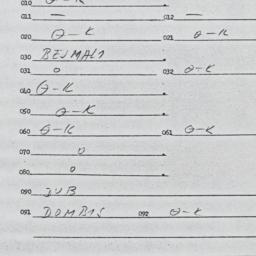 010 θ-K
011 — 012 —
020 θ-K 021 θ-K
030 BEJMAŁ
031 0 032 θ-K
040 θ-K
050 θ-K
060 θ-K 061 θ-K
070 0
080 0
090 DUB
091 DOMBIS 092 θ-K